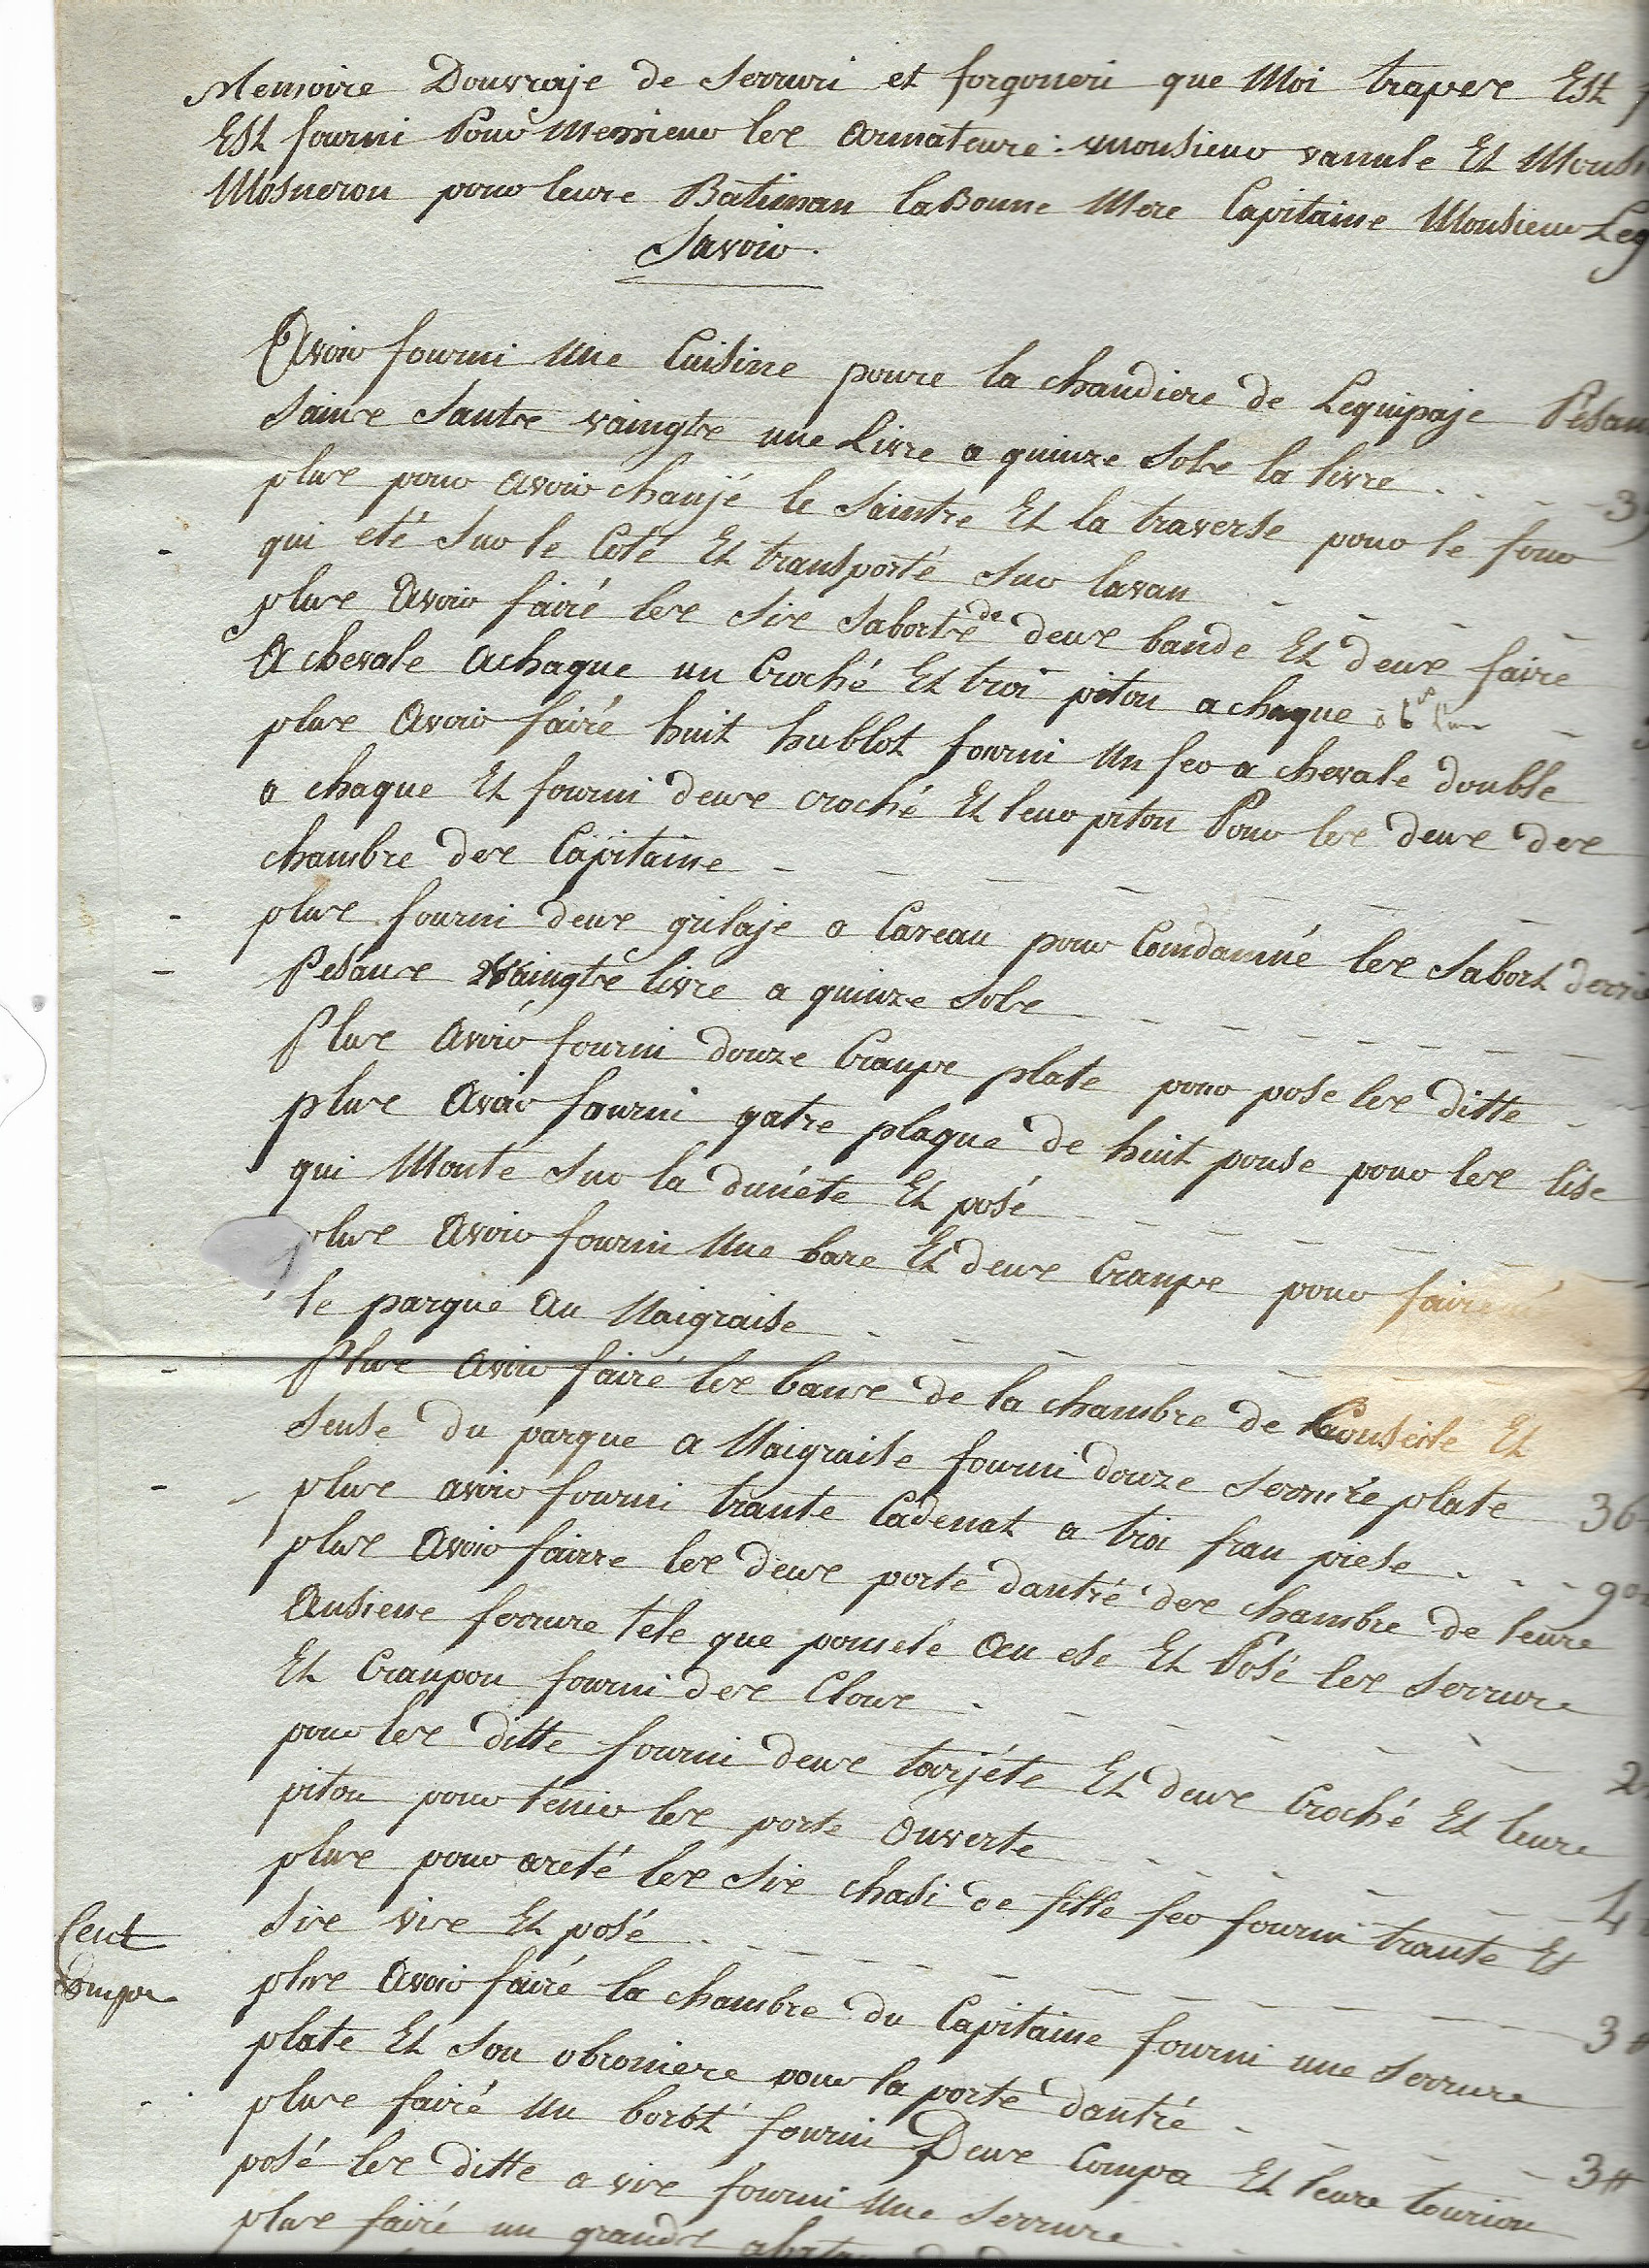 Memoire Douvraje de Serruri et forgoneri que Moi traper Est
Est fourni Pour Messieur les Armateure: Monsieur vanule Et Mons
Mosneron pour leure Batiman la Bonne Mere Capitaine Monsieur Leg
Savoir.
Avoir fourni Une Cuisine poure la chaudiere de Lequipaje Pesan
Sainx Santx vaingtx une Livre a quinze Solx la livre 3
plux pour avoir chanjé le Saintre Et la traverse pour le four
qui eté Sur le Coté Et transporté Sur lavan
plux Avoir fairé lex Six Sabortx de deux bande Et deux faire
A chevale Achaque un Croché Et troi piton a chaque
plux Avoir fairé huit hublot fourni Un fer a chevale double
a chaque Et fourni deux croché Et leur piton Pour lex deux dex
chambre dex Capitaine
plux fourni deux grilaje a Careau pour Comdamné lex Sabort derri
Pesanx vaingtx livre a quinze Solx
Plux Avoir fourni douze Crampe plate pour pose lex ditte
plux Avoir fourni qatre plaque de huit pouse pour lex lise
qui Monte Sur la dunéte Et posé
plux Avoir fourni Une bare Et deux Crampe pour faire
le parque Au Naigraise
Plux Avoir fairé lex banx de la chambre de Conseile Et
Seuse du parque a Naigraise fourni douze Serrure plate 36
plux avoir fourni trante Cadenat a troi fran piese 90
plux Avoir fairre lex deux porte dantré dex chambre de leure
Ansiene ferrure tele que pomele Au ese Et Posé lex Serrure
Et Crampon fourni dex Cloux 2
pour lex ditte fourni deux tarjéte Et deux Croché Et leure
piton pour tenir lex porte Ouverte 4
plux pour areté lex Six chasi de fille fer fourni trante Et
Six vix Et posé 3
plux Avoir fairé la chambre du Capitaine fourni une Serrure
plate Et Son obroniere pour la porte dantré 3#
plux fairé Un borot fourni Deux Compa Et leure tourion
posé lex ditte a vix fourni Une Serrure
plux fairé un grandx
Cent